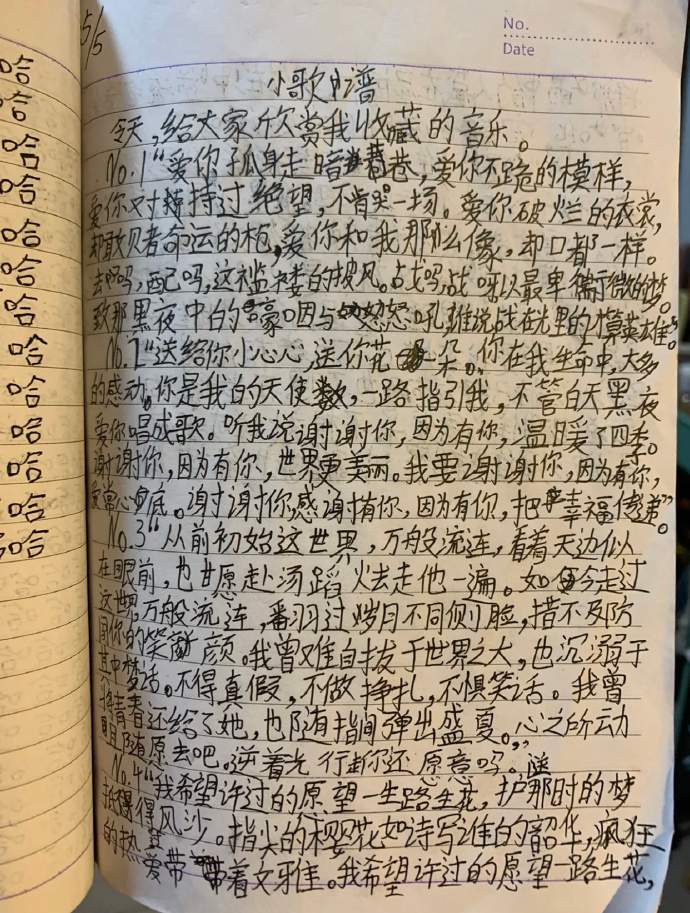 哈
哈
哈
哈
哈
哈
哈
哈
哈
哈
哈
哈
哈
哈
5/5
No.
Date
小歌谱
今天,给大家欣赏我收藏的音乐。
No.1“爱你孤身走暗巷,爱你不跪的模样,
爱你对峙过绝望,不肯哭一场。爱你破烂的衣裳,
却敢贝者命运的枪,爱你和我那么像,却口都一样。
去吗,配吗,这褴褛的披风。战吗,战呀以最卑微的梦。
致那黑夜中的与怒吼谁说战在光里的算英雄”。
No.2“送给你小心心送你花一朵。你在我生命中,太多
的感动。你是我的天使,一路指引我,不管白天黑夜
爱你唱成歌。听我说谢谢你,因为有你,温暖了四季。
谢谢你,因为有你,世界更美丽。我要谢谢你,因为有你,
爱常心底。谢谢你感谢有你,因为有你,把幸福传递”。
No.3“从前初始这世界,万般流连,看着天边似
在眼前,也甘愿赴汤蹈火去走他一遍。如今走过
这世界,万般流连,翻过岁月不同侧脸,措不及防
闯你的笑颜。我曾难自拔于世界之大,也沉溺于
其中梦话。不得真假,不做挣扎,不惧笑话。我曾
将青春还给了她,也随指间弹出盛夏。心之所动
随愿去吧。逆着光行走你还愿意吗。”
No.4“我希望许过的愿望一生路生花,护那时的梦
抵得风沙。指尖的樱花如诗写谁的韶华,疯狂
的热爱带着文雅。我希望许过的愿望一路生花,